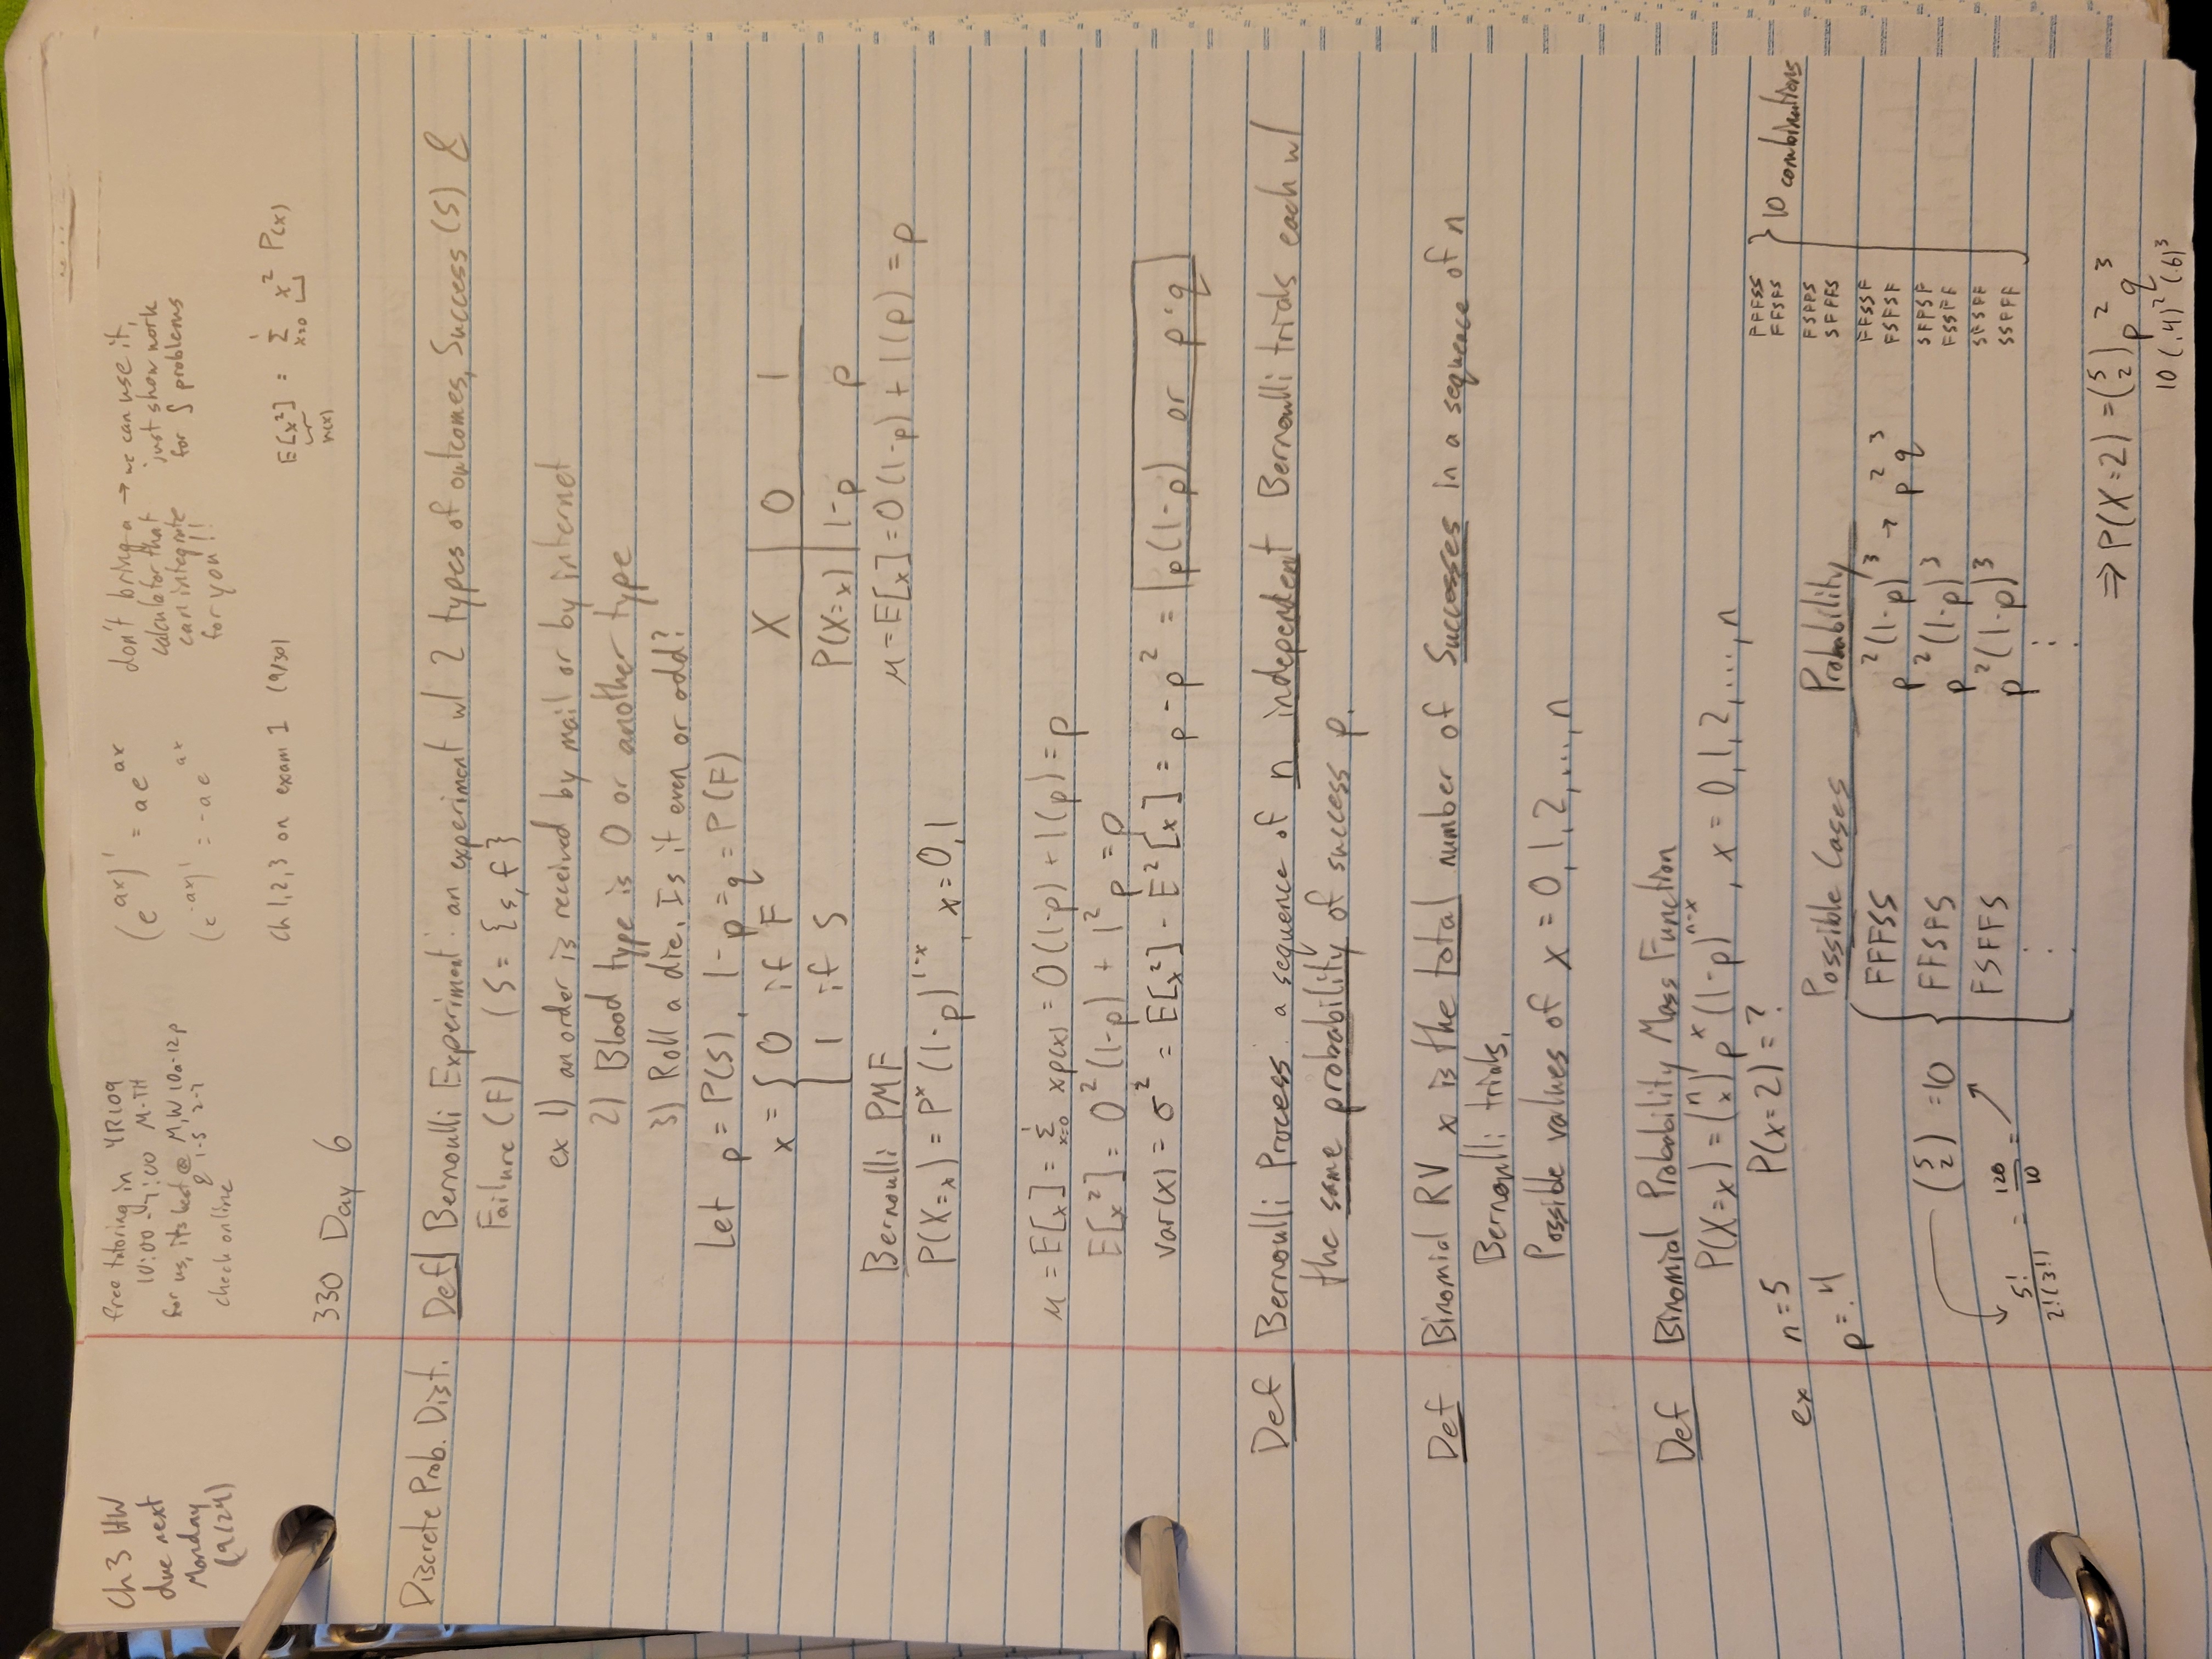 Ch 3 HW
due next
Monday
(9/24)
free tutoring in YR109
10:00-7:00 M-TH
for us, its best @ M,W 10a-12p
& 1-5 2-7
check online
(e^{ax})' = ae^{ax}
(e^{-ax})' = -ae^{ax}
don't bring a → we can use it,
calculator that just show work
can integrate for ∫ problems
for you!!
Ch 1,2,3 on exam 1 (9/30)
E[x²] = Σ_{x=0}^{1} x² P(x)
h(x)
330 Day 6
Discrete Prob. Dist.
Def Bernoulli Experiment: an experiment w/ 2 types of outcomes, Success (S) &
Failure (F) (S = {s, f}
ex 1) an order is received by mail or by internet
2) Blood type is O or another type
3) Roll a die. Is it even or odd?
Let p = P(S), 1-p = q = P(F)
x = { 0 if F
1 if S
X | 0 1
P(X=x) | 1-p p
μ = E[x] = 0(1-p) + 1(p) = p
Bernoulli PMF
P(X=x) = P^x (1-p)^{1-x}, x = 0,1
μ = E[x] = Σ_{x=0}^{1} xp(x) = 0(1-p) + 1(p) = p
E[x²] = 0²(1-p) + 1²p = p
var(x) = σ² = E[x²] - E²[x] = p - p² = p(1-p) or p·q
Def Bernoulli Process: a sequence of n independent Bernoulli trials each w/
the same probability of success p.
Def Binomial RV x is the total number of Successes in a sequence of n
Bernoulli trials.
Possible values of x = 0,1,2,...,n
Def Binomial Probability Mass Function
P(X=x) = (n x) p^x (1-p)^{n-x}, x = 0,1,2,...,n
ex n=5 P(x=2) = ?
p=.4
Possible Cases Probability
FFFSS p²(1-p)³ → p²q³
FFSFS p²(1-p)³
FSFFS p²(1-p)³
(5 2) = 10
5!/2!(3!) = 120/10 =
FFFSS
FFSFS
FSFFS
SFFFS
FFSSF
FSFSF
SFFSF
FSSFF
SFSFF
SSFFF
} 10 combinations
⇒ P(X=2) = (5 2) p² q³
10 (.4)² (.6)³